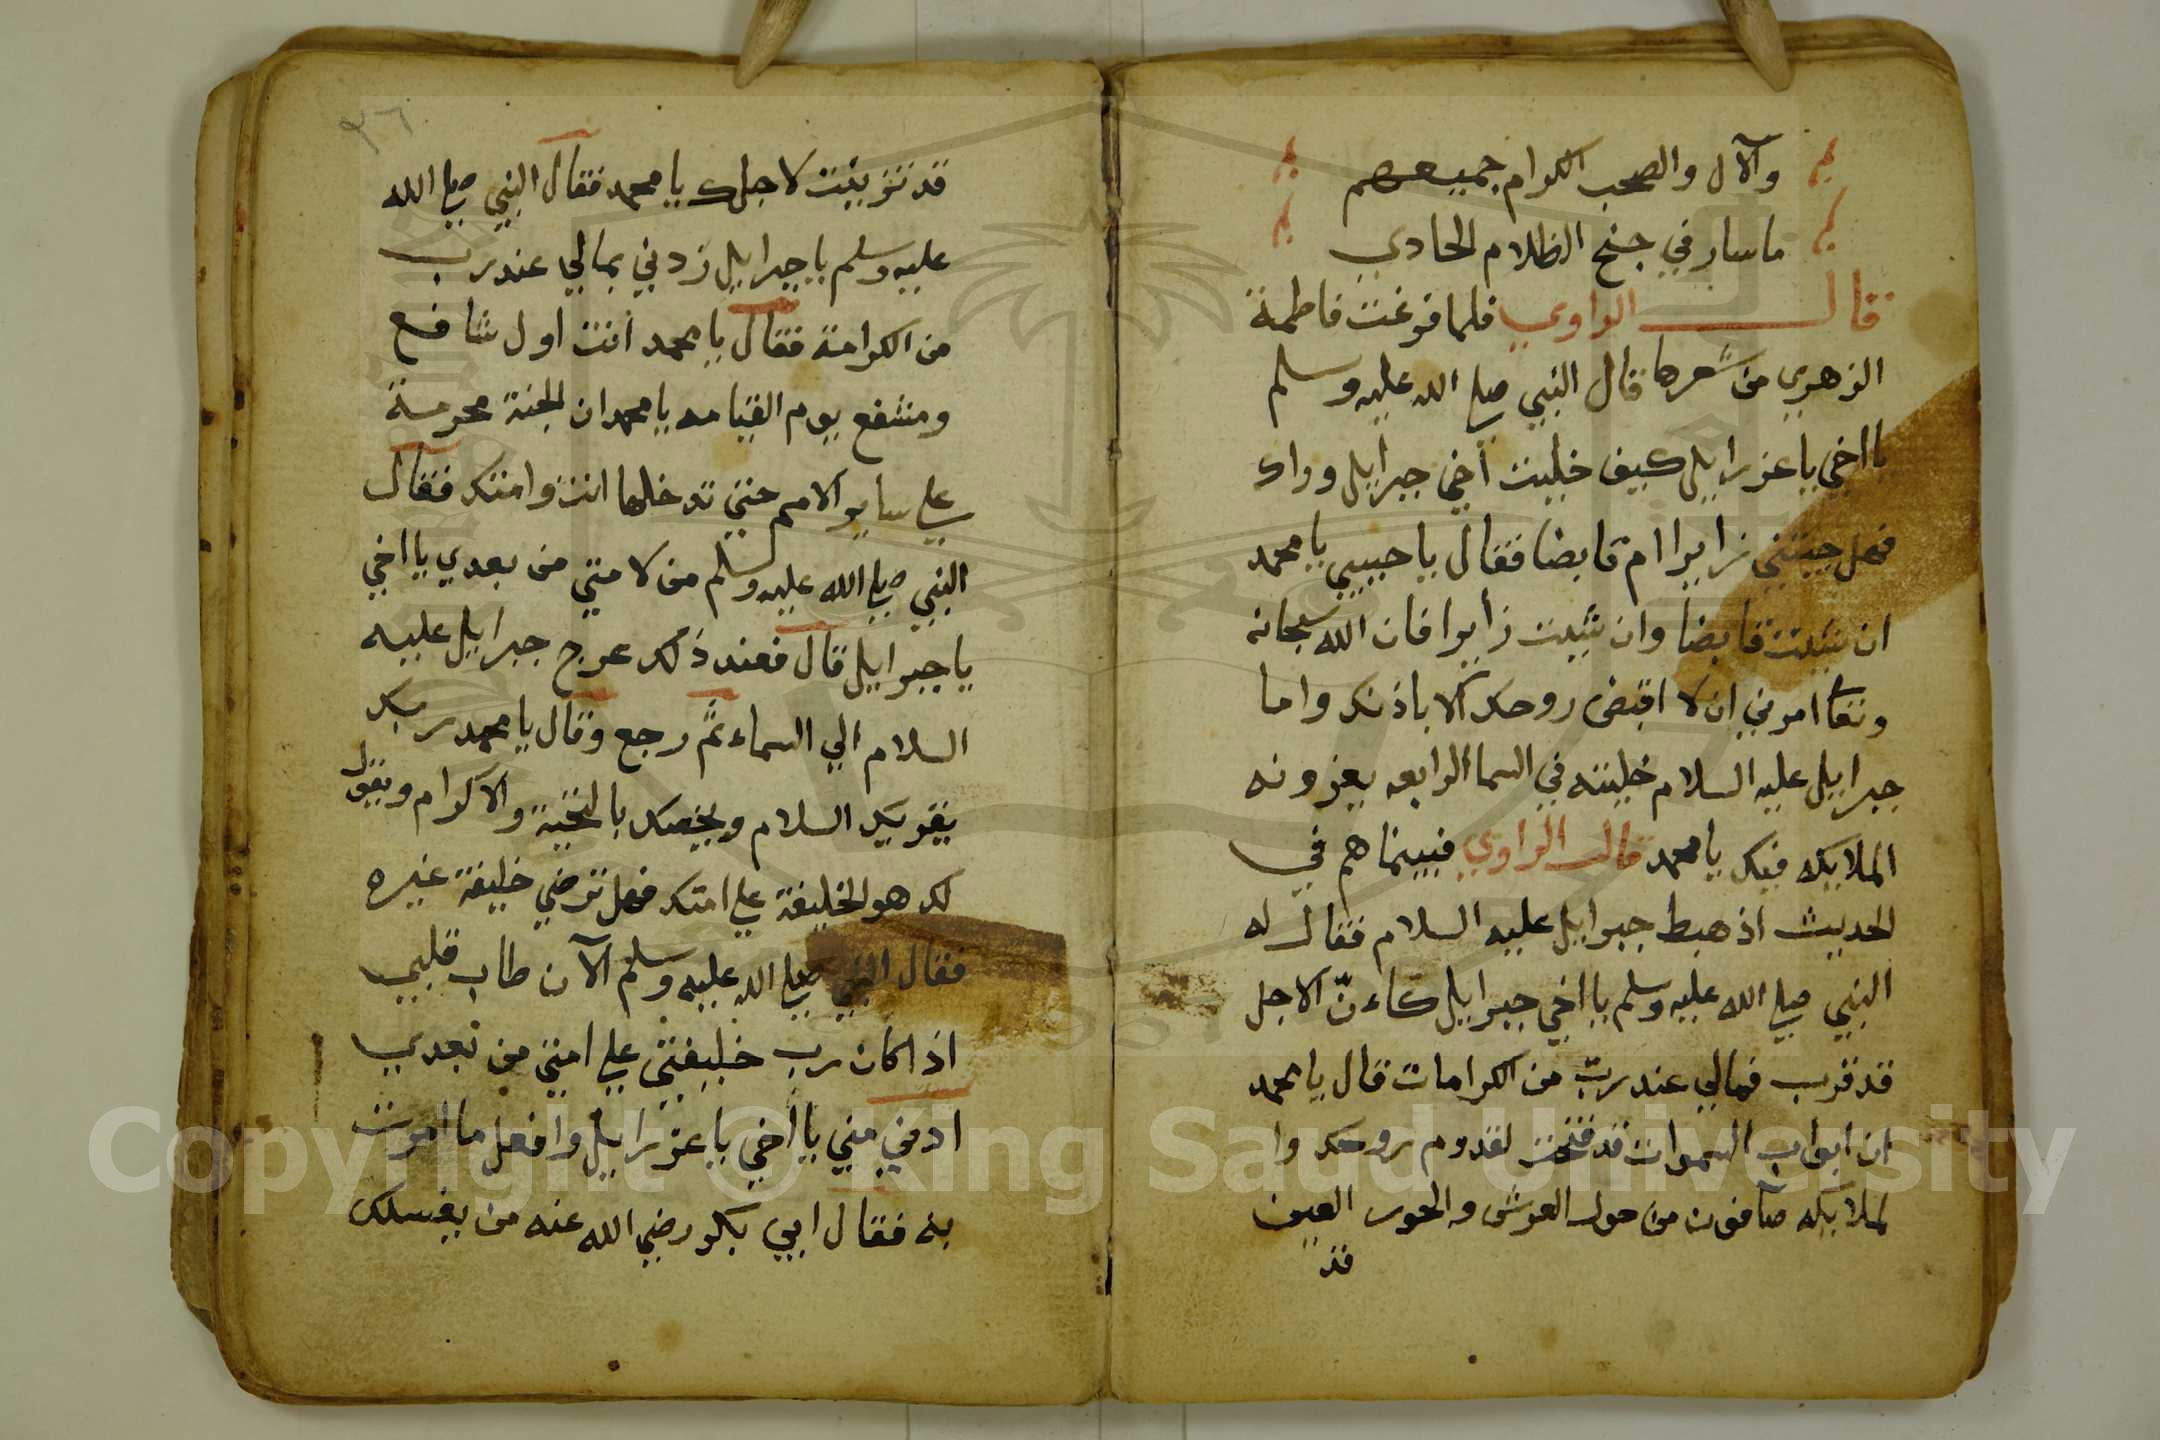 والآل والصحب الكرام جميعهم
ما سار في جنح الظلام الحادي
قال الراوي فلما فرغت فاطمة
الزهري من شعرها قال النبي صلى الله عليه وسلم
يا اخي يا عزرايل كيف خليت أخي جبرايل وراك
فهل جيتني زايرا ام قابضا فقال يا حبيبي يا محمد
ان شيت قابضا وان شيت زايرا فان الله سبحانه
وتعا امرني ان لا اقبض روحك الا باذنك واما
جبرايل عليه السلام خليته في السما الرابعه يعزونه
الملايكه فيك يا محمد قال الراوي فبينما هم في
الحديث اذ هبط جبرايل عليه السلام فقال له
النبي صلى الله عليه وسلم يا اخي جبرايل كاءنّ الاجل
قد قرب فمالي عند ربّ من الكرامات قال يا محمد
ان ابواب السموات قد فتحت لقدوم روحك وا
لملايكه صآفون من حول العرش والحور العين
قد
٣٦
قد تزينت لاجلك يا محمد فقال النبي صلى الله
عليه وسلم يا جبرايل زدني بمالي عند رب
من الكرامة فقال يا محمد انت اول شافع
ومشفع يوم القيامه يا محمد ان الجنة محرمة
على ساير الامم حتى تدخلها انت وامتك فقال
النبي صلى الله عليه وسلم من لامتي من بعدي يا اخي
يا جبرايل قال فعند ذلك عرج جبرايل عليه
السلام الي السماء ثمّ رجع وقال يا محمد ربك
يقريك السلام ويخصك بالتحية والاكرام ويقول
لك هو الخليفة على امتك فهل ترضي خليفة غيره
فقال النبي صلى الله عليه وسلم الآن طاب قلبي
اذا كان رب خليفتي على امتي من بعدي
ادني مني يا أخي يا عزرايل وافعل ما امرت
به فقال ابي بكر رضي الله عنه من يغسلك
Copyright © King Saud University